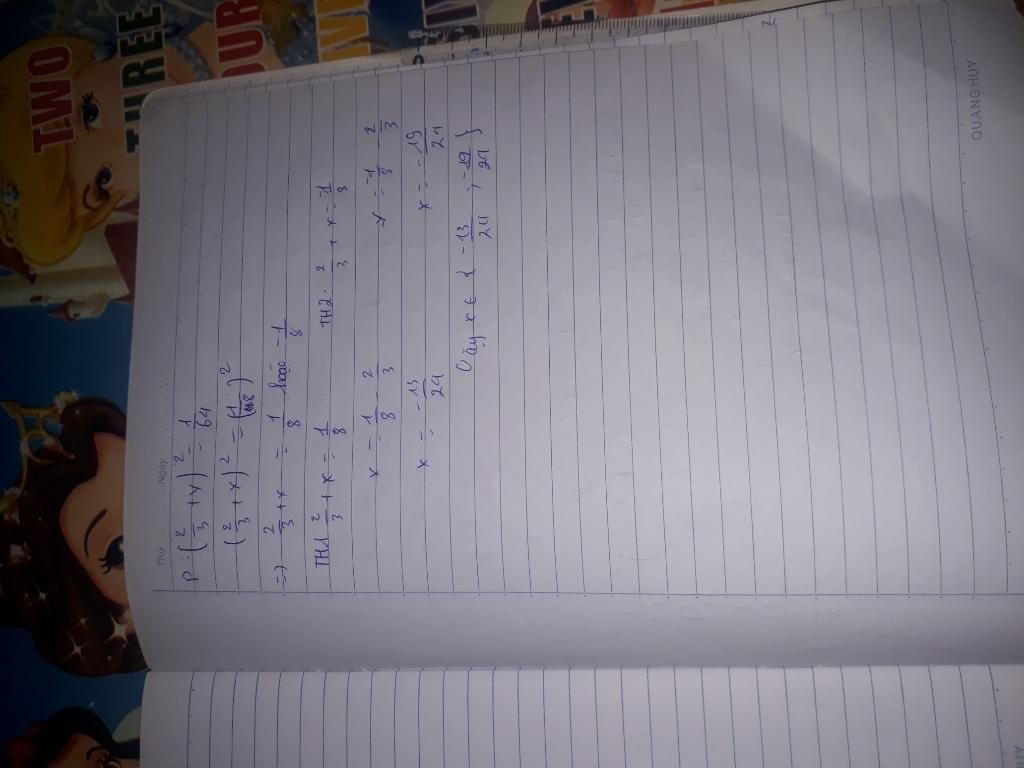 TWO
THREE
OUR
Thứ Ngày
P: (2/3 + x)² = 1/64
(2/3 + x)² = (1/8)²
=> 2/3 + x = 1/8 hoặc -1/8
TH1 2/3 + x = 1/8 TH2: 2/3 + x = -1/8
x = 1/8 - 2/3 x = -1/8 - 2/3
x = -13/24 x = -19/24
Vậy x ∈ { -13/24 ; -19/24 }
QUANG HUY
UY